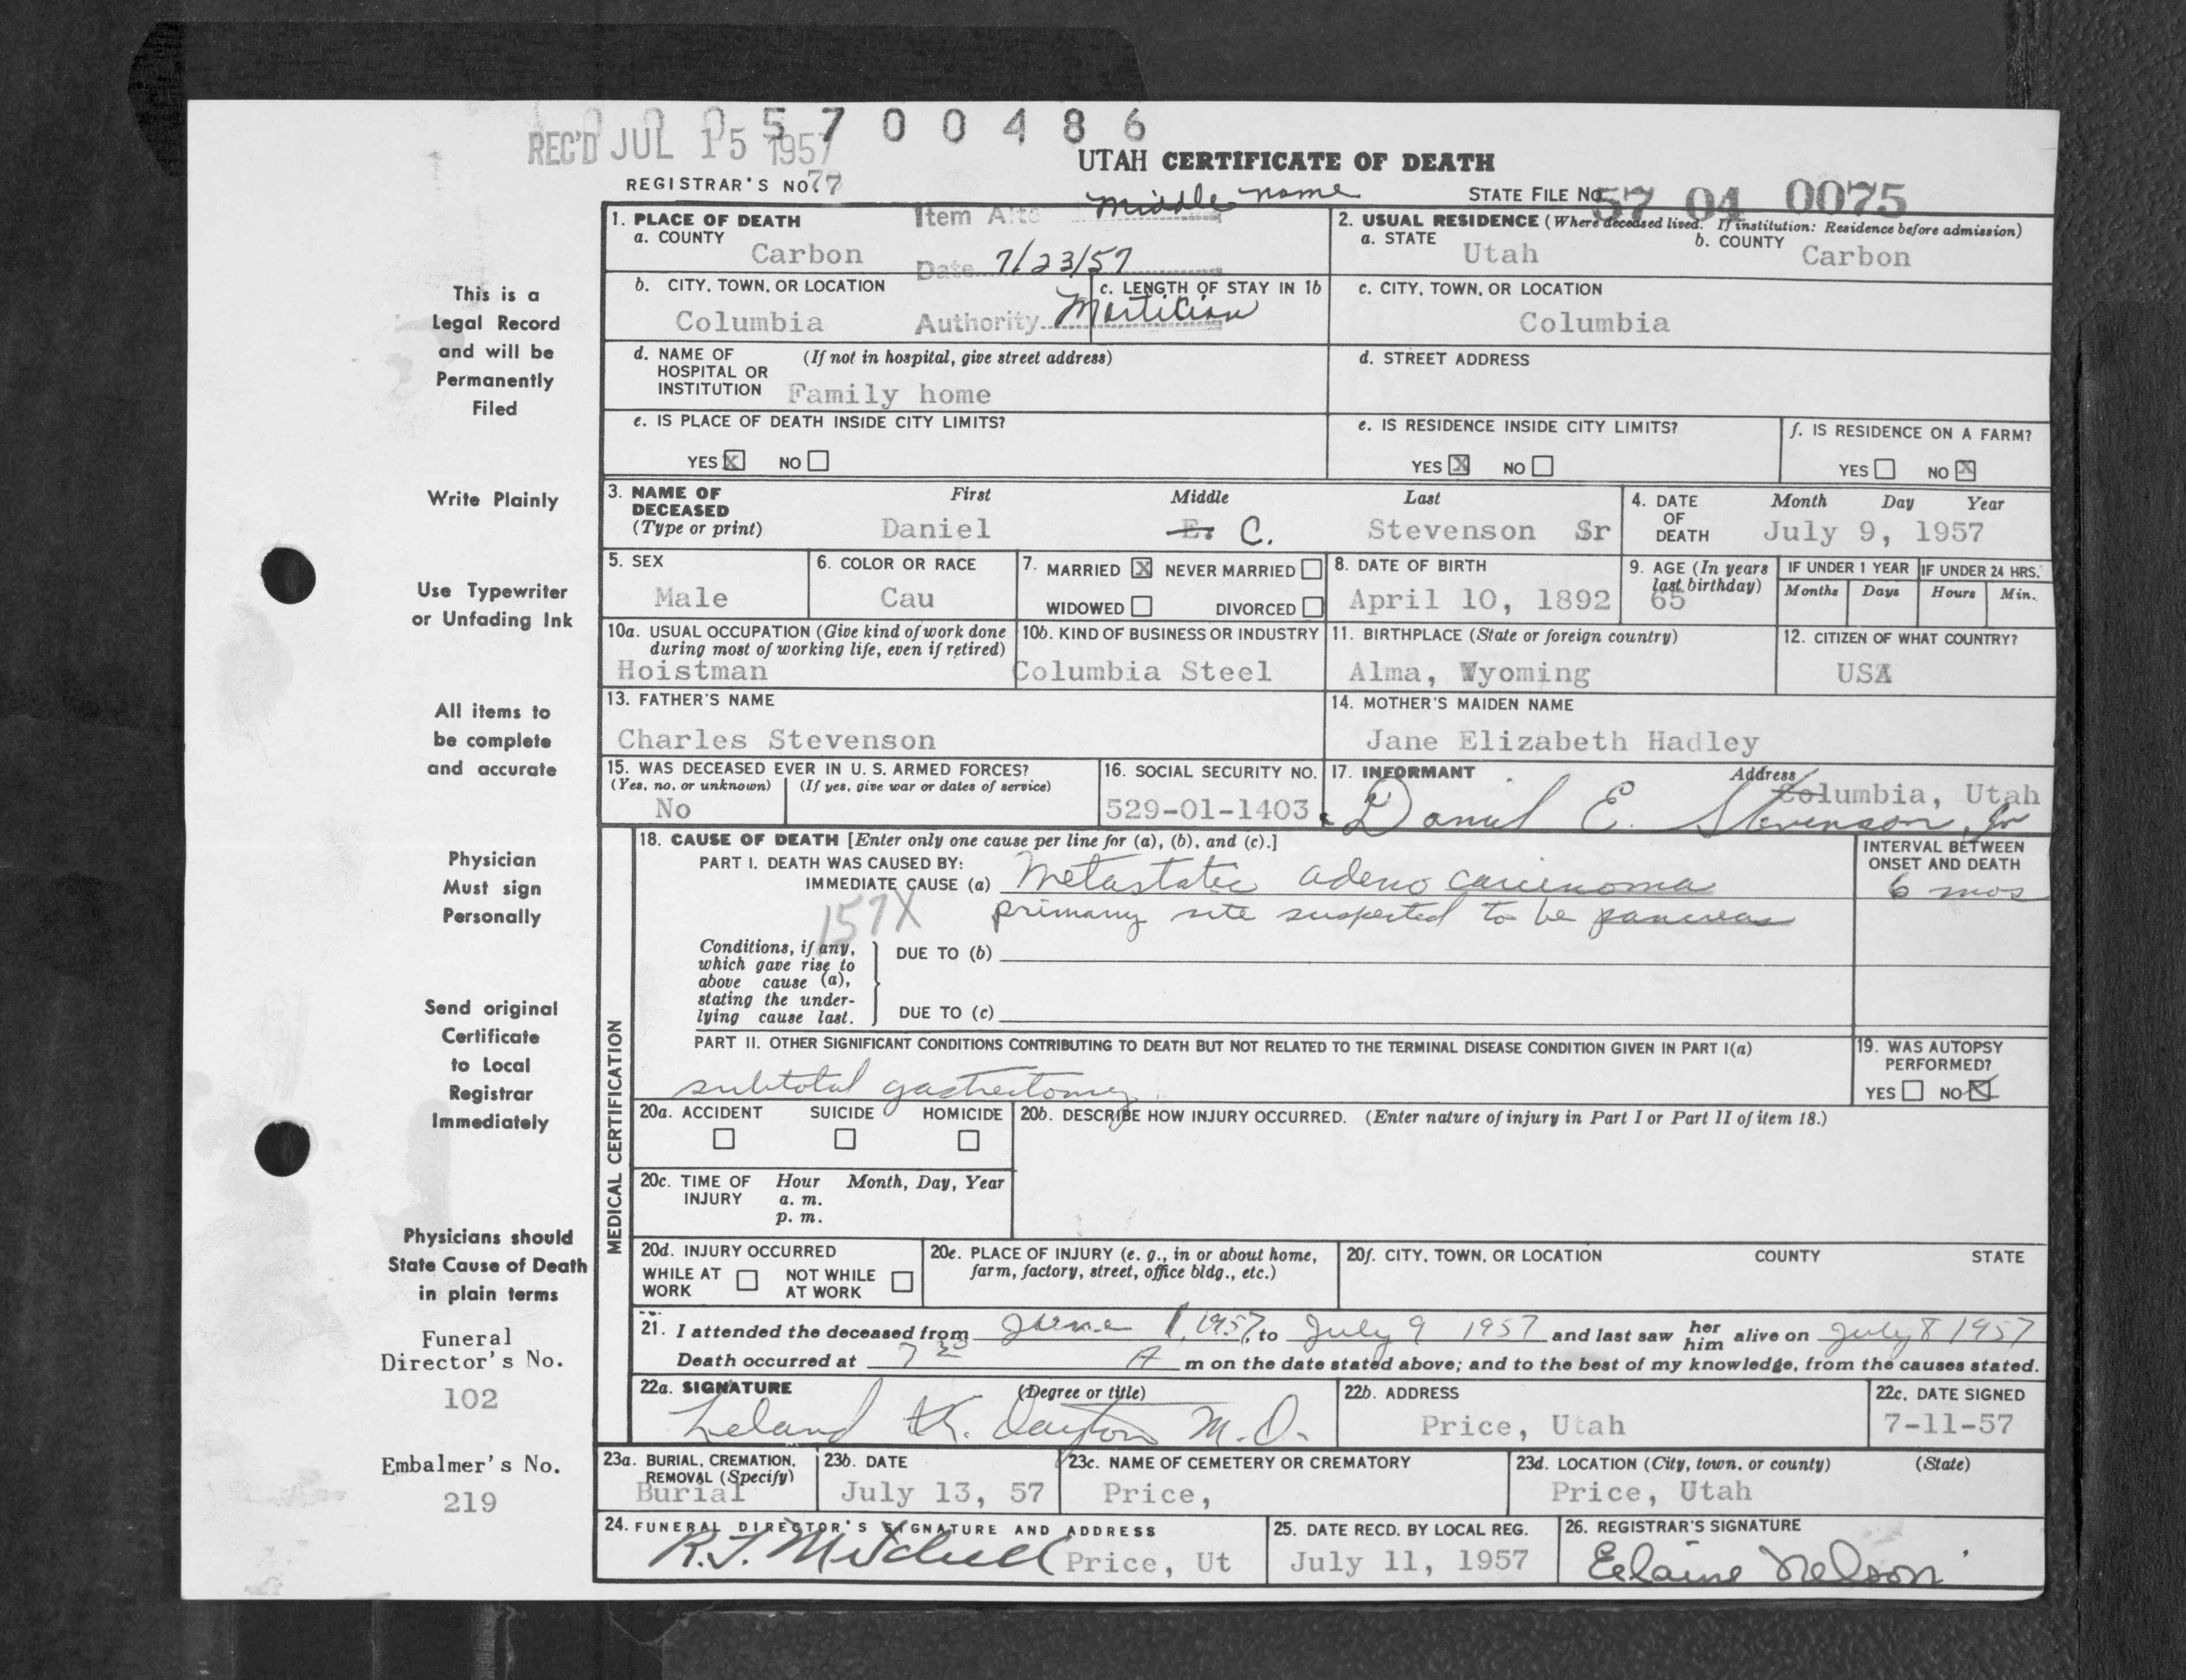 0 0 0 5 7 0 0 4 8 6
REC'D JUL 15 1957
UTAH CERTIFICATE OF DEATH
REGISTRAR'S NO. 77
STATE FILE NO. 57 04 0075
Item Alte Middle name
Date 7/23/57
Authority Mortician
1. PLACE OF DEATH
a. COUNTY
Carbon
2. USUAL RESIDENCE (Where deceased lived. If institution: Residence before admission)
a. STATE Utah
b. COUNTY Carbon
b. CITY, TOWN, OR LOCATION
Columbia
c. LENGTH OF STAY IN 1b
c. CITY, TOWN, OR LOCATION
Columbia
d. NAME OF HOSPITAL OR INSTITUTION
(If not in hospital, give street address)
Family home
d. STREET ADDRESS
e. IS PLACE OF DEATH INSIDE CITY LIMITS?
YES X NO
e. IS RESIDENCE INSIDE CITY LIMITS?
YES X NO
f. IS RESIDENCE ON A FARM?
YES NO X
3. NAME OF DECEASED
(Type or print)
First Middle Last
Daniel E. C. Stevenson Sr
4. DATE OF DEATH
Month Day Year
July 9, 1957
5. SEX
Male
6. COLOR OR RACE
Cau
7. MARRIED X NEVER MARRIED
WIDOWED DIVORCED
8. DATE OF BIRTH
April 10, 1892
9. AGE (In years last birthday)
65
IF UNDER 1 YEAR
Months Days
IF UNDER 24 HRS.
Hours Min.
10a. USUAL OCCUPATION (Give kind of work done during most of working life, even if retired)
Hoistman
10b. KIND OF BUSINESS OR INDUSTRY
Columbia Steel
11. BIRTHPLACE (State or foreign country)
Alma, Wyoming
12. CITIZEN OF WHAT COUNTRY?
USA
13. FATHER'S NAME
Charles Stevenson
14. MOTHER'S MAIDEN NAME
Jane Elizabeth Hadley
15. WAS DECEASED EVER IN U. S. ARMED FORCES?
(Yes, no, or unknown) (If yes, give war or dates of service)
No
16. SOCIAL SECURITY NO.
529-01-1403
17. INFORMANT Address
Columbia, Utah
Daniel E. Stevenson, Jr
MEDICAL CERTIFICATION
18. CAUSE OF DEATH [Enter only one cause per line for (a), (b), and (c).]
PART I. DEATH WAS CAUSED BY:
IMMEDIATE CAUSE (a) Metastatic adeno carcinoma
primary site suspected to be pancreas
157X
INTERVAL BETWEEN ONSET AND DEATH
6 mos
Conditions, if any, which gave rise to above cause (a), stating the underlying cause last.
DUE TO (b)
DUE TO (c)
PART II. OTHER SIGNIFICANT CONDITIONS CONTRIBUTING TO DEATH BUT NOT RELATED TO THE TERMINAL DISEASE CONDITION GIVEN IN PART I(a)
subtotal gastrectomy
19. WAS AUTOPSY PERFORMED?
YES NO X
20a. ACCIDENT SUICIDE HOMICIDE
20b. DESCRIBE HOW INJURY OCCURRED. (Enter nature of injury in Part I or Part II of item 18.)
20c. TIME OF INJURY
Hour Month, Day, Year
a. m.
p. m.
20d. INJURY OCCURRED
WHILE AT WORK
NOT WHILE AT WORK
20e. PLACE OF INJURY (e. g., in or about home, farm, factory, street, office bldg., etc.)
20f. CITY, TOWN, OR LOCATION COUNTY STATE
21. I attended the deceased from June 1, 1957, to July 9 1957 and last saw her him alive on July 8 1957
Death occurred at A m on the date stated above; and to the best of my knowledge, from the causes stated.
22a. SIGNATURE (Degree or title)
Leland K. Dayton M.D.
22b. ADDRESS
Price, Utah
22c. DATE SIGNED
7-11-57
23a. BURIAL, CREMATION, REMOVAL (Specify)
Burial
23b. DATE
July 13, 57
23c. NAME OF CEMETERY OR CREMATORY
Price,
23d. LOCATION (City, town, or county) (State)
Price, Utah
24. FUNERAL DIRECTOR'S SIGNATURE AND ADDRESS
R.J. Mitchell Price, Ut
25. DATE RECD. BY LOCAL REG.
July 11, 1957
26. REGISTRAR'S SIGNATURE
Eelaine Nelson
This is a
Legal Record
and will be
Permanently
Filed
Write Plainly
Use Typewriter
or Unfading Ink
All items to
be complete
and accurate
Physician
Must sign
Personally
Send original
Certificate
to Local
Registrar
Immediately
Physicians should
State Cause of Death
in plain terms
Funeral
Director's No.
102
Embalmer's No.
219